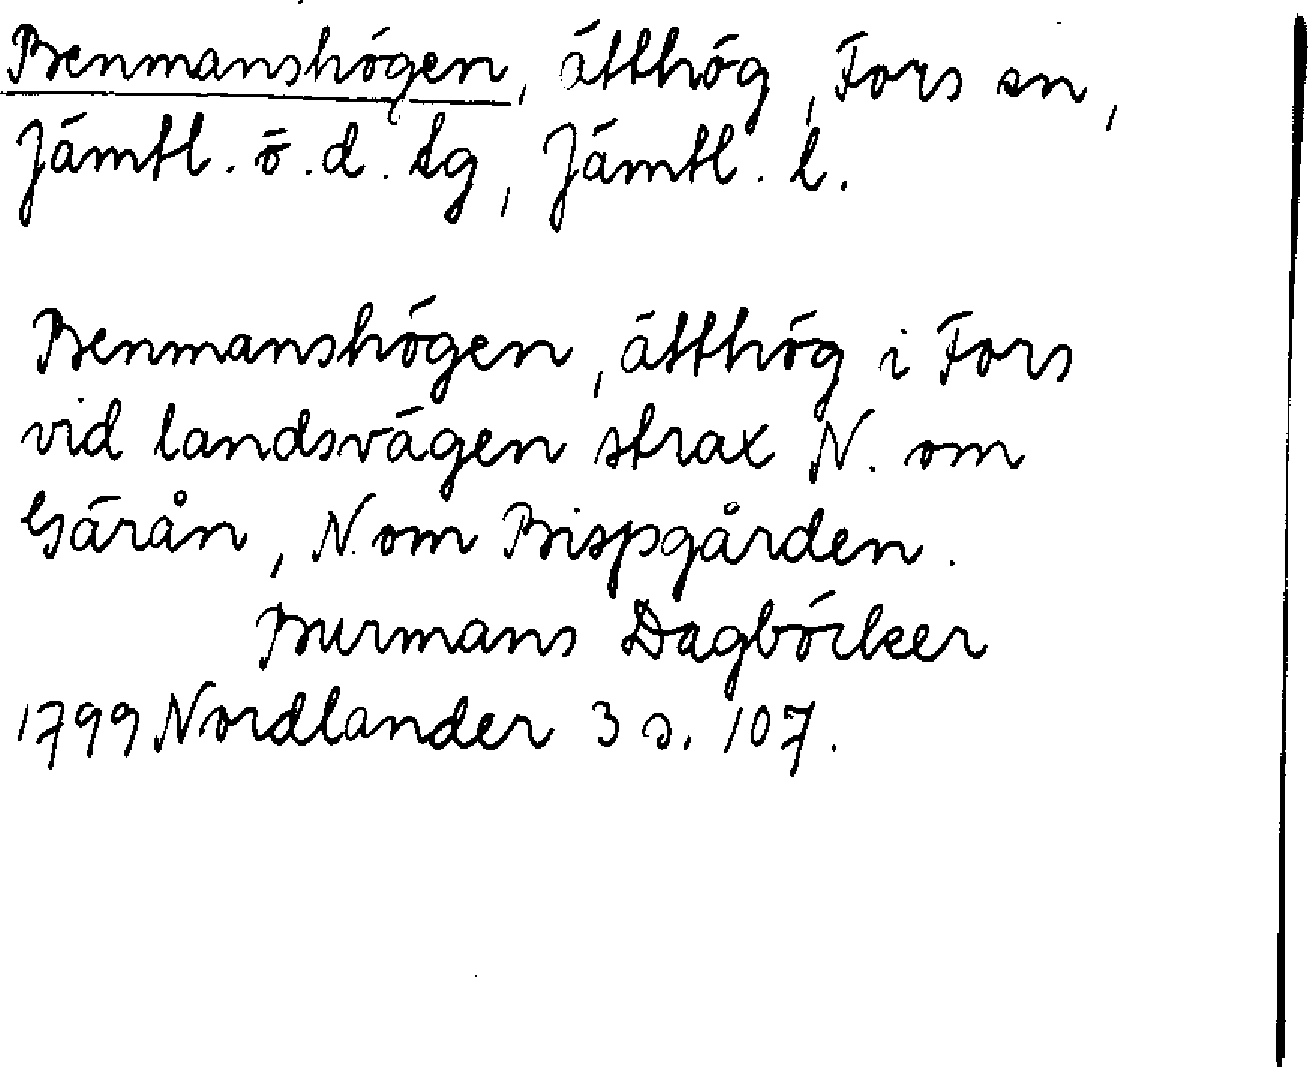 Benmanshögen, ätthög, Fors sn,
Jämtl. ö. d. tg, Jämtl. l.
Benmanshögen, ätthög i Fors
vid landsvägen strax N. om
Gärån, N. om Bispgården.
Burmans Dagböcker
1799 Nordlander 3 s. 107.